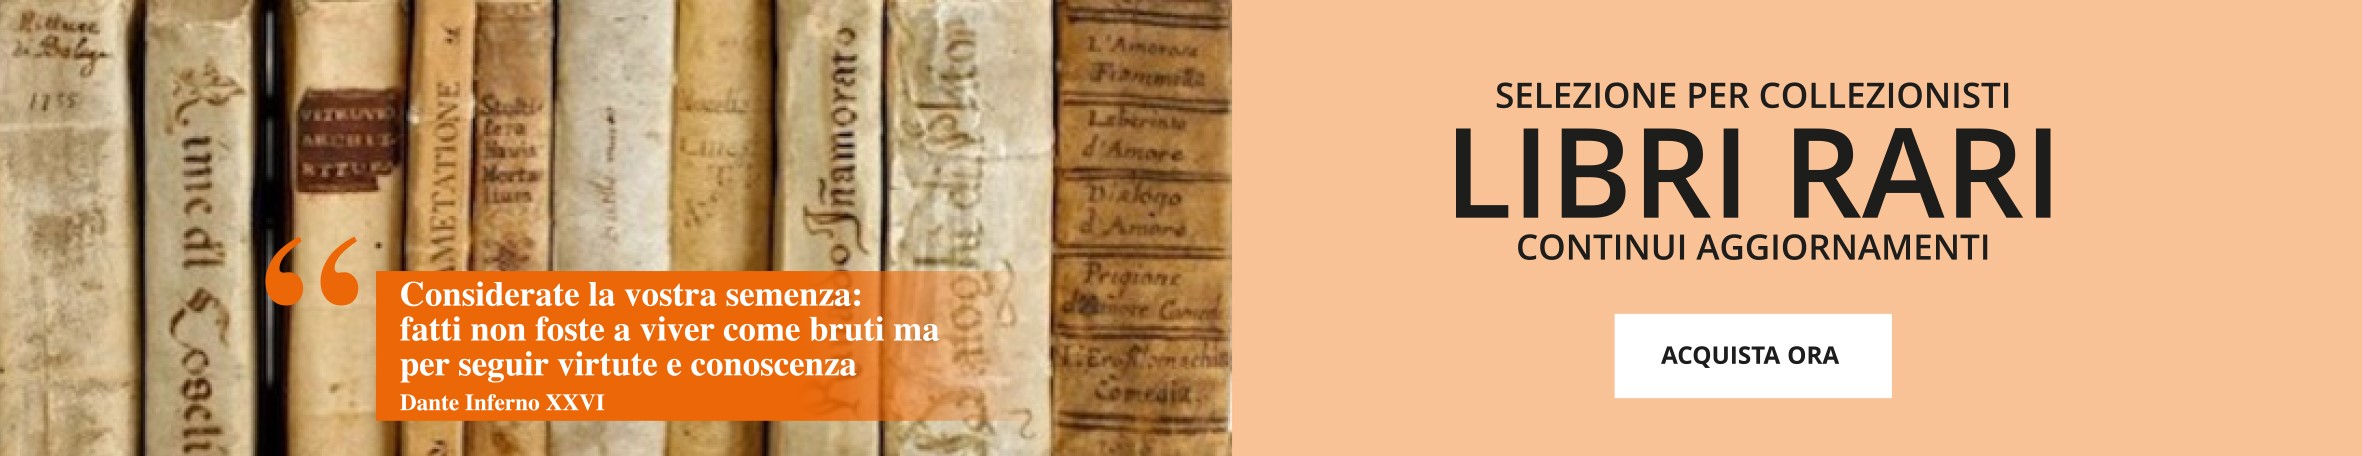 Pitture
di Bologn
1755
Rime d'l
VITRUVIO
ARCHIT
ETTURA
AMETATIONE
Stulti
fera
Navis
Morta
lium
Iñamorato
Dialoghi di platon
L'Amorosa
Fiammetta
Laberinto
d'Amore
Dialogo
d'Amore.
Prigione
d'Amore Comed
Comedia.
“
Considerate la vostra semenza:
fatti non foste a viver come bruti ma
per seguir virtute e conoscenza
Dante Inferno XXVI
SELEZIONE PER COLLEZIONISTI
LIBRI RARI
CONTINUI AGGIORNAMENTI
ACQUISTA ORA